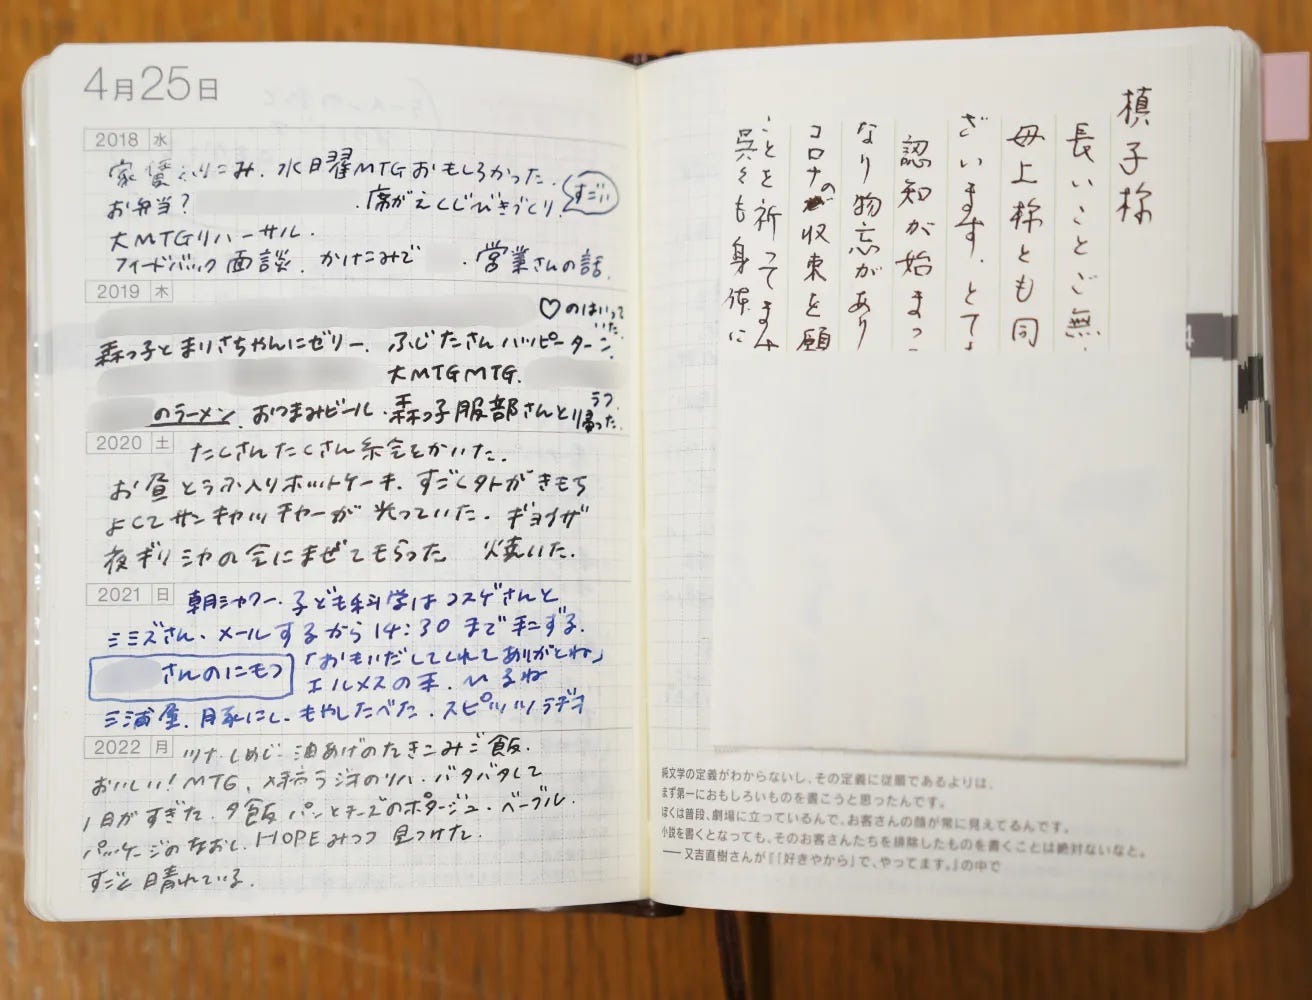 4月25日
2018 水
家賃ふりこみ、水曜日MTGおもしろかった、
お弁当?
、席がえくじびきづくり、
すごい
大MTGリハーサル、
フィードバック面談、かけこみで
、営業さんの話、
2019 木
♡のはいって
いた、
森っ子とまりさちゃんにゼリー、ふじたさんハッピーターン、
大MTGMTG、
のラーメン、おつまみビール、森っ子服部さんと
帰った、
2020 土
たくさんたくさん絵をかいた、
お昼とうふ入りホットケーキ、すごく外がきもち
よくてサンキャッチャーが光っていた、ギョウザ
夜ギリシャの会にまぜてもらった 焼いた、
2021 日
朝シャワー、子ども科学はコスゲさんと
ミミズさん、メールするから14:30まで
さんのにもつ
「おもいだしてくれてありがとね」
エルメスの手、いるね
三浦屋、豚にし、もやしたべた、スピッツ
2022 月
ツナ、しめじ、油あげのたきこみご飯、
おいしい! MTG、リハ、バタバタして
1日がすぎた、夕飯パンとチーズのポタージュ、ベーグル、
パッケージのなおし、HOPEみつつ見つけた、
すごく晴れている、
槙子様
長いことご無
母上様とも同
ざいます、とて
認知が始まっ
なり物忘があり
コロナの収束を願
ことを祈ってます
呉々も身体に
4
純文学の定義がわからないし、その定義に従順であるよりは、
まず第一におもしろいものを書こうと思ったんです。
ぼくは普段、劇場に立っているんで、お客さんの顔が常に見えてるんです。
小説を書くとなっても、そのお客さんたちを排除したものを書くことは絶対ないなと。
── 又吉直樹さんが『「好きやから」で、やってます。』の中で